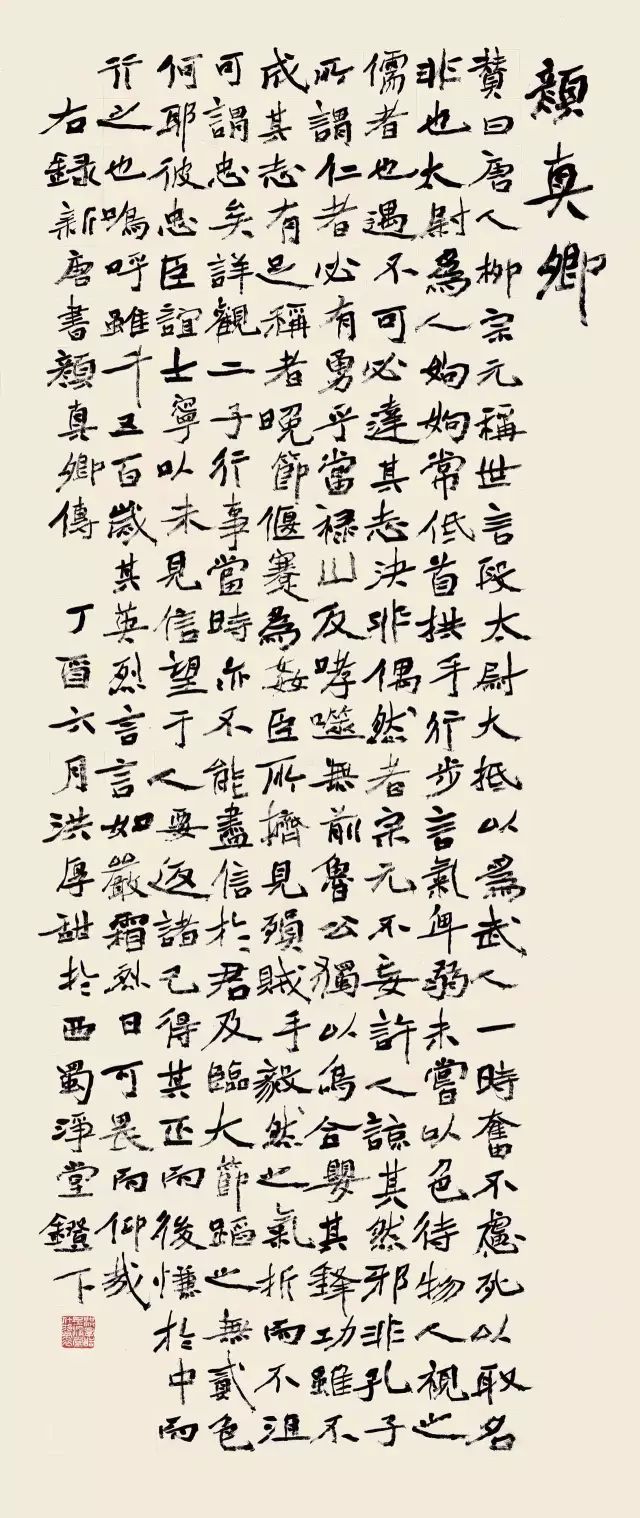 顏真卿
贊曰唐人柳宗元稱世言段太尉大抵以爲武人一時奮不慮死以取名
非也太尉爲人姁姁常低首拱手行步言氣卑弱未嘗以色待物人視之
儒者也遇不可必達其志決非偶然者宗元不妄許人諒其然邪非孔子
所謂仁者必有勇乎當祿山反哮噬無前魯公獨以烏合嬰其鋒功雖不
成其志有足稱者晚節偃蹇爲姦臣所擠見殞賊手毅然之氣折而不沮
可謂忠矣詳觀二子行事當時亦不能盡信於君及臨大節蹈之無貳色
何耶彼忠臣誼士寧以未見信望于人要返諸己得其正而後慊於中而
行之也嗚呼雖千五百歲其英烈言言如嚴霜烈日可畏而仰哉
右錄新唐書顏真卿傳 丁酉六月洪厚甜於西蜀淨堂鐙下